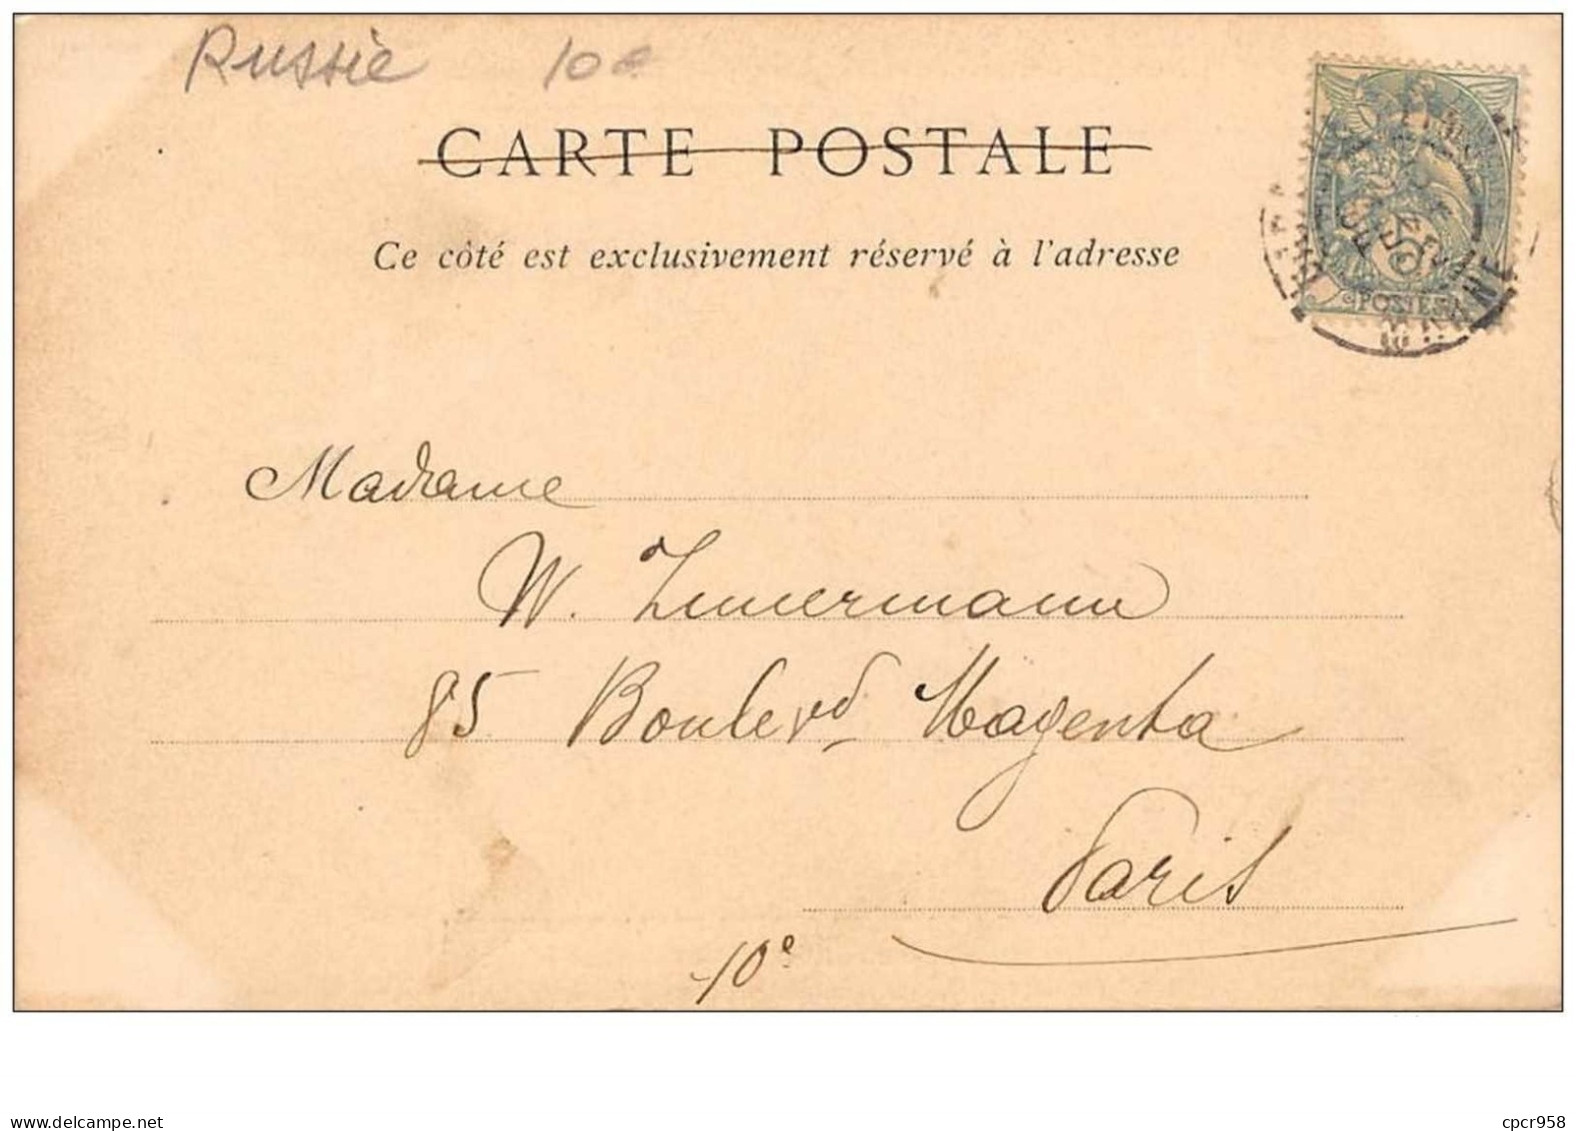 Russie 10€
CARTE POSTALE
Ce côté est exclusivement réservé à l'adresse
POSTES
Madame
W. Zimmermann
85 Boulevd Magenta
Paris
10e
www.delcampe.net
cpcr958